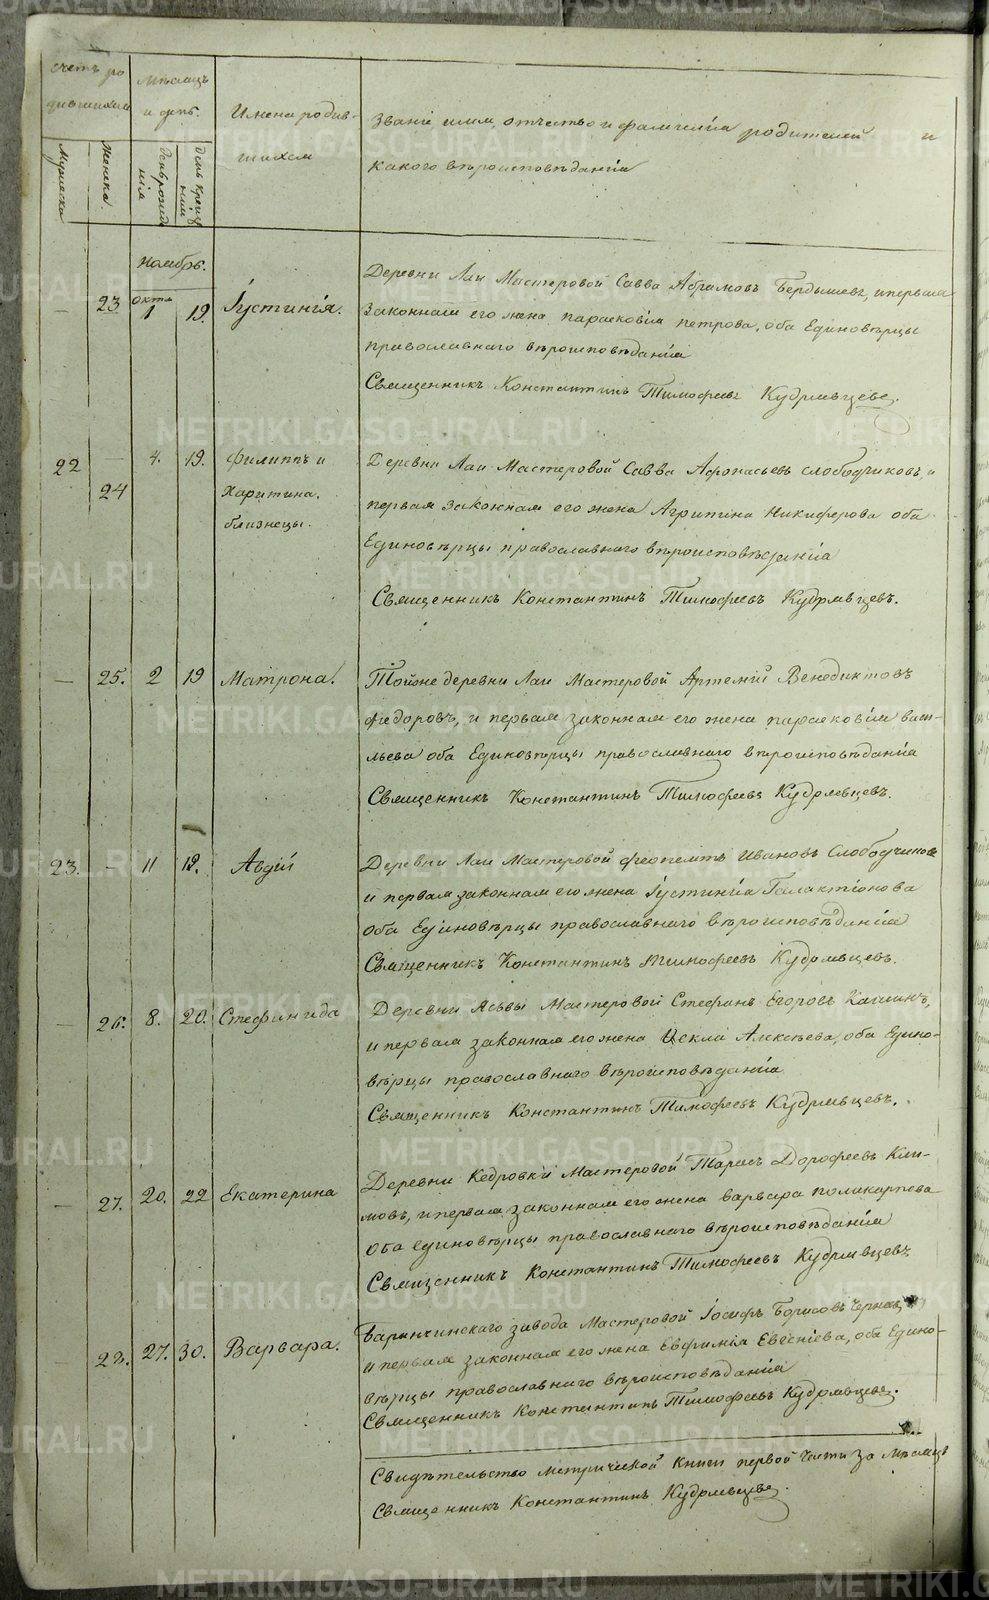 счетъ ро
дившихся
Мужеска
Женска.
Мѣсяцъ
и день.
день рожде
нія
день креще
нія
Имена родив-
шихся
Званіе имя, отчество и фамилія родителей и
какого вѣроисповѣданія
Ноябрь.
— 23 окт. 1 19. Іустинія.
Деревни Лаи Мастеровой Савва Абрамовъ Бердышевъ, и первая
законная его жена Парасковія Петрова, оба Единовѣрцы
православнаго вѣроисповѣданія
Священникъ Константинъ Тимофеевъ Кудрявцевъ.
22 — 4. 19. Филиппъ и
24 Харитина.
близнецы.
Деревни Лаи Мастеровой Савва Афонасьевъ Слободчиковъ, и
первая законная его жена Агрипина Никиферова оба
Единовѣрцы православнаго вѣроисповѣданія
Священникъ Константинъ Тимофеевъ Кудрявцевъ.
— 25. 2 19 Матрона.
Тойже деревни Лаи Мастеровой Артемій Венедиктовъ
Федоровъ, и первая законная его жена Парасковія Васи-
льева оба Единовѣрцы православнаго вѣроисповѣданія
Священникъ Константинъ Тимофеевъ Кудрявцевъ.
23. — 11 19. Авдій
Деревни Лаи Мастеровой Феопемтъ Ивановъ Слободчиковъ
и первая законная его жена Іустинія Галактіонова
оба Единовѣрцы православнаго вѣроисповѣданія
Священникъ Константинъ Тимофеевъ Кудрявцевъ.
— 26. 8. 20. Стефанида
Деревни Асьвы Мастеровой Стефанъ Егоровъ
и первая законная его жена Алексѣева, оба Едино-
вѣрцы православнаго вѣроисповѣданія
Священникъ Константинъ Тимофеевъ Кудрявцевъ.
— 27. 20. 22 Екатерина
Деревни Кедровки Мастеровой Тарасъ Дорофеевъ Кли-
мовъ, и первая законная его жена Варвара Поликарпова
оба единовѣрцы православнаго вѣроисповѣданія
Священникъ Константинъ Тимофеевъ Кудрявцевъ
— 28. 27. 30. Варвара.
Баранчинскаго завода Мастеровой Іосифъ Борисовъ
и первая законная его жена Евфимія Евгеніева, оба Едино-
вѣрцы православнаго вѣроисповѣданія
Священникъ Константинъ Тимофеевъ Кудрявцевъ.
Свидѣтельство метрической книги первой части за мѣсяцъ
Священникъ Константинъ Кудрявцевъ.
METRIKI.GASO-URAL.RU